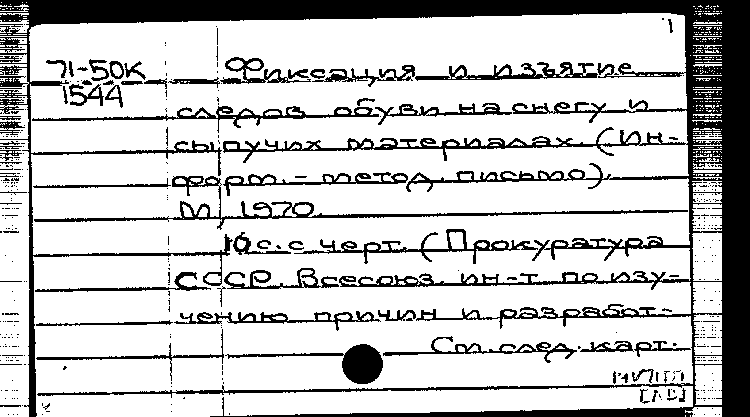 1
71-50К Фиксация и изъятие
1544
следов обуви на снегу и
сыпучих материалах. (Ин-
форм.-метод. письмо).
М., 1970.
16 с. с черт. (Прокуратура
СССР. Всесоюз. ин-т по изу-
чению причин и разработ-
См. след. карт.